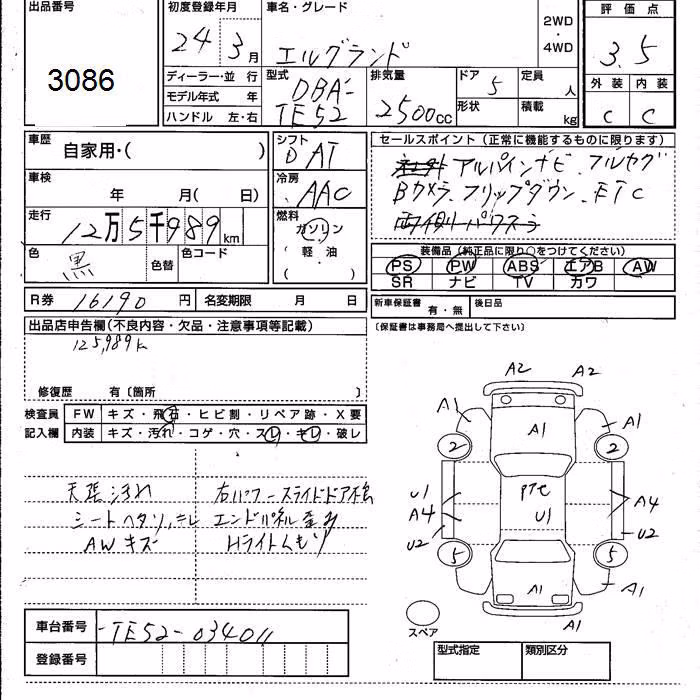 出品番号
3086
初度登録年月
24 3月
車名・グレード
エルグランド
2WD
・
4WD
評価点
3.5
外装 内装
C C
ディーラー・並行
モデル年式 年
ハンドル 左・右
型式
DBA-
TE52
排気量
2500cc
ドア
5
形状
定員
人
積載
kg
車歴
自家用・( )
車検
年 月( 日)
走行
12万5千989km
色
黒
色替
色コード
シフト
D AT
冷房
AAC
燃料
ガソリン
( 軽油 )
セールスポイント(正常に機能するものに限ります)
アルパインナビ フルセグ
Bカメラ フリップダウン ETC
装備品(純正品に限り○をつけてください)
PS PW ABS エアB AW
SR ナビ TV カワ
R券 16190円
名変期限 月 日
新車保証書 有・無
後日品
(保証書は事務局へ提出して下さい)
出品店申告欄(不良内容・欠品・注意事項等記載)
125,989k
修復歴 有〔箇所 〕
検査員
記入欄
FW キズ・飛石・ヒビ割・リペア跡・X要
内装 キズ・汚れ・コゲ・穴・スレ・キレ・破レ
天張汚れ
シートヘタリ、キレ
AWキズ
右パワースライドドア不良
エンドパネル歪み
Hライトくもり
A2 A2
A1 A1 A1
2 2
U1 Pte A4
A4 U1
U2 U2
5 5
A1 A1
A1
スペア
車台番号
-TE52-034011
登録番号
型式指定 類別区分